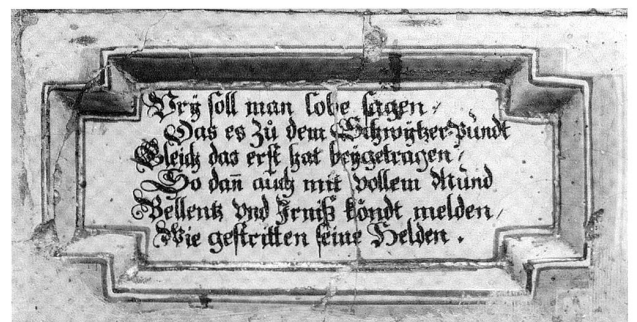 Vrÿ soll man lobe sagen,
Das es Zů dem Schwÿtzer Pundt
Gleich das erst hat beÿgetragen,
So dañ auch mit vollem Mund
Bellentz vnd Jrniß köndt melden,
Wie gestritten seine Helden.